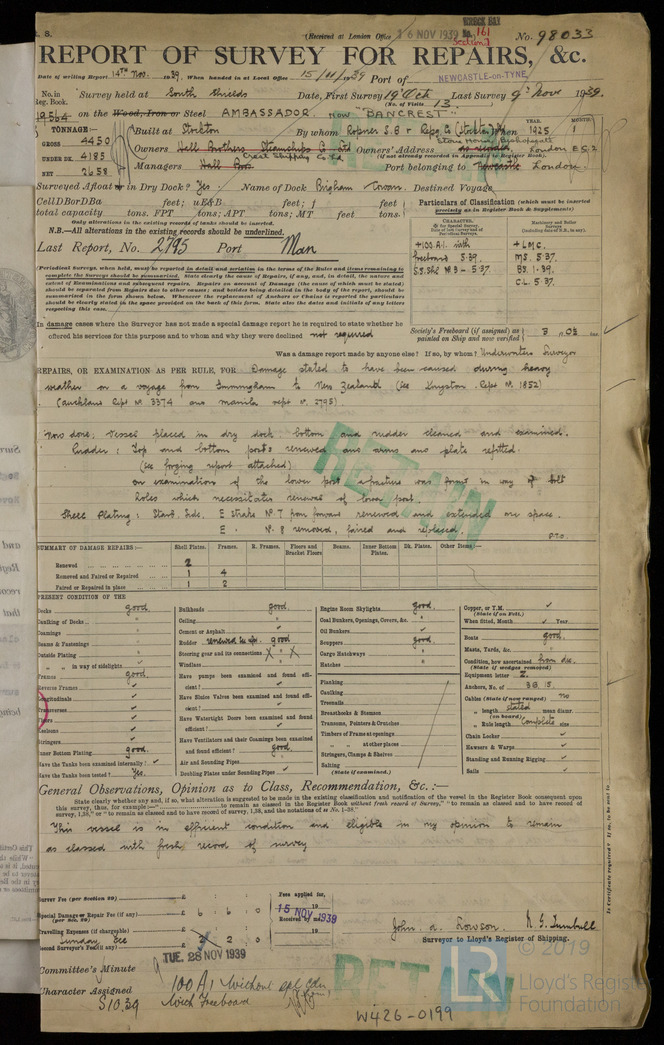 (Received at London Office 16 NOV 1939
WRECK BAY
No. 161
Section 1
No. 98033
REPORT OF SURVEY FOR REPAIRS, &c.
Date of writing Report 14TH Nov. 1939. When handed in at Local Office 15/11/1939 Port of NEWCASTLE-on-TYNE
No. in Reg. Book. Survey held at South Shields Date, First Survey 19 Oct. Last Survey 9th Nov 1939.
(No. of Visits 13
19564 on the Wood, Iron or Steel AMBASSADOR now "BANCREST"
TONNAGE:— Built at Stockton By whom Ropner S.B & Repg Co (Stockton) When 1925
YEAR. MONTH.
GROSS 4450
UNDER DK. 4185
NET 2658
Owners Hall Brothers Steamship Co Ltd Owners' Address Stone House, Bishopsgate
Crest Shipping Co Ld. (if not already recorded in Appendix to Register Book). London EC2
Managers Hall Bros. Port belonging to Newcastle London.
Surveyed Afloat or in Dry Dock? Yes Name of Dock Brigham Cowan. Destined Voyage
CellDBorDBa feet; uE&B feet; f feet
total capacity tons. FPT tons; APT tons; MT feet tons.
Only alterations in the existing records of tanks should be inserted.
N.B.—All alterations in the existing records should be underlined.
Particulars of Classification (which must be inserted precisely as in Register Book & Supplements)
Last Report, No. 2795 Port Man
+100 A1. with freeboard 5.39.
S.S. Shl No 3 - 5.37.
+ LMC.
MS. 5.37.
BS. 1.39.
CL. 5.37.
(Periodical Surveys, when held, must be reported in detail and seriatim in the terms of the Rules and items remaining to
complete the Survey should be summarised. State clearly the cause of Repairs, if any, and, in detail, the nature and
extent of Examinations and subsequent repairs. Repairs on account of Damage (the cause of which must be stated)
should be separated from Repairs due to other causes; and besides being detailed in the body of the report, should be
summarized in the form shown below. Whenever the replacement of Anchors or Chains is reported the particulars
should be clearly stated in the space provided on the back of this form. State also the dates and initials of any letters
respecting this case.
In damage cases where the Surveyor has not made a special damage report he is required to state whether he
offered his services for this purpose and to whom and why they were declined not required
Society's Freeboard (if assigned) as painted on Ship and now verified
Was a damage report made by anyone else? If so, by whom? Underwriters Surveyor
REPAIRS, OR EXAMINATION AS PER RULE, FOR Damage stated to have been caused during heavy
weather on a voyage from Immingham to New Zealand (see Kingston Rept No 1852)
(Auckland Rept No 3374 and Manila rept No 2795)
Now done; Vessel placed in dry dock bottom and rudder cleaned and examined.
Rudder: Top and bottom posts renewed and arms and plate refitted.
(see forging report attached)
on examination of the lower post a fracture was found in way of bolt
holes which necessitates renewal of lower post.
Shell Plating: Starb. Side. E strake No 7 from forward renewed and extended one space.
E. No. 8 removed, faired and replaced.
P.T.O.
RETAIN
RETAIN
RETAIN
SUMMARY OF DAMAGE REPAIRS:— Shell Plates. Frames. R. Frames. Floors and Bracket Floors Beams. Inner Bottom Plates. Dk. Plates. Other Items:—
Renewed 2
Removed and Faired or Repaired 1 4
Faired or Repaired in place 1 2
PRESENT CONDITION OF THE
Decks good
Caulking of Decks "
Coamings "
Beams & Fastenings "
Outside Plating "
" " in way of sidelights
Frames good
Reverse Frames
Longitudinals
Transverses
Stringers
Inner Bottom Plating good.
Have the Tanks been examined internally?
Have the Tanks been tested? Yes.
Bulkheads good.
Ceiling "
Cement or Asphalt
Rudder renewed in pt. good
Steering gear and its connections X X
Windlass
Have pumps been examined and found efficient?
Have Sluice Valves been examined and found efficient?
Have Watertight Doors been examined and found efficient?
Have Ventilators and their Coamings been examined and found efficient? good.
Air and Sounding Pipes
Doubling Plates under Sounding Pipes
Engine Room Skylights good.
Coal Bunkers, Openings, Covers, &c. "
Oil Bunkers
Scuppers good
Cargo Hatchways "
Hatches "
Planking
Caulking
Treenails
Breasthooks & Stemson
Transoms, Pointers & Crutches
Timbers of Frame at openings
" " at other places
Stringers, Clamps & Shelves
Salting
(State if examined.)
Copper, or Y.M.
(State if on Felt.)
When fitted, Month Year
Boats good.
Masts, Yards, &c. "
Condition, how ascertained from dec.
(State if wedges removed)
Equipment letter Z.
Anchors, No. of 3B 1S.
Cables (State if now ranged) no
" length stated mean diamr.
(on board)
" Rule length complete size
Chain Locker
Hawsers & Warps
Standing and Running Rigging
Sails
General Observations, Opinion as to Class, Recommendation, &c.:—
State clearly whether any and, if so, what alteration is suggested to be made in the existing classification and notification of the vessel in the Register Book consequent upon
this survey, thus, for example:—" to remain as classed in Register Book without fresh record of Survey," "to remain as classed and to have record of
survey, 1,38," or "to remain as classed and to have record of survey, 1,38, and the notations of ss No. 1–38."
This vessel is in efficient condition and eligible in my opinion to remain
as classed with fresh record of survey
Survey Fee (per Section 29) £
Special Damage or Repair Fee (if any) (per Sec. 29) £ 6 6 0
Travelling Expenses (if chargeable) £
Sunday Fee 2 2 0
Second Surveyor's Fee (if any)
Fees applied for,
15 NOV 1939
Received by me,
19
John A. Lowson. N. G. Turnbull
Surveyor to Lloyd's Register of Shipping.
TUE. 28 NOV 1939
Committee's Minute
Character Assigned 100 A1 without spl cdn,
S10.39 With Freeboard
© 2019
LR
Lloyd's Register
Foundation
W426-0199
Is Certificate required? If so, to be sent to